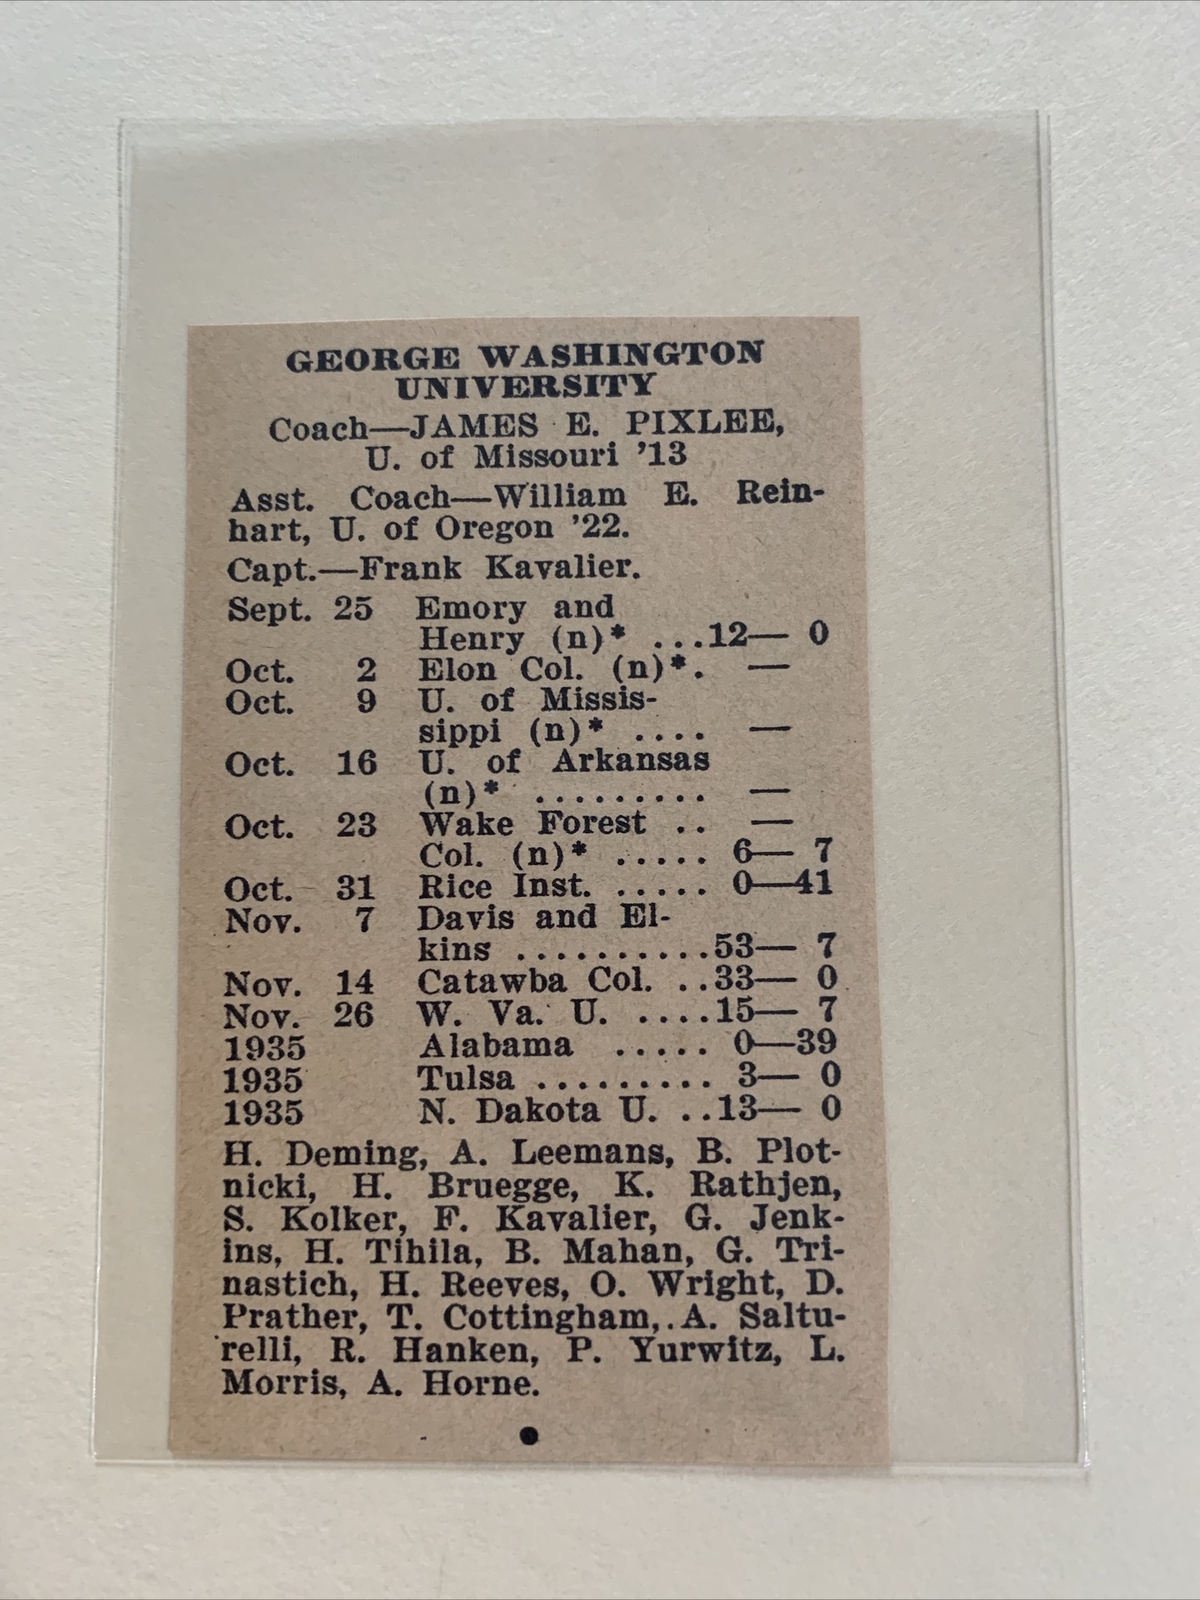 GEORGE WASHINGTON
UNIVERSITY
Coach—JAMES E. PIXLEE,
U. of Missouri '13
Asst. Coach—William E. Rein-
hart, U. of Oregon '22.
Capt.—Frank Kavalier.
Sept. 25 Emory and
Henry (n)* ...12— 0
Oct. 2 Elon Col. (n)*. —
Oct. 9 U. of Missis-
sippi (n)* .... —
Oct. 16 U. of Arkansas
(n)* ......... —
Oct. 23 Wake Forest .. —
Col. (n)* ..... 6— 7
Oct. 31 Rice Inst. ..... 0—41
Nov. 7 Davis and El-
kins ..........53— 7
Nov. 14 Catawba Col. ..33— 0
Nov. 26 W. Va. U. ....15— 7
1935 Alabama ..... 0—39
1935 Tulsa ......... 3— 0
1935 N. Dakota U. ..13— 0
H. Deming, A. Leemans, B. Plot-
nicki, H. Bruegge, K. Rathjen,
S. Kolker, F. Kavalier, G. Jenk-
ins, H. Tihila, B. Mahan, G. Tri-
nastich, H. Reeves, O. Wright, D.
Prather, T. Cottingham, A. Saltu-
relli, R. Hanken, P. Yurwitz, L.
Morris, A. Horne.